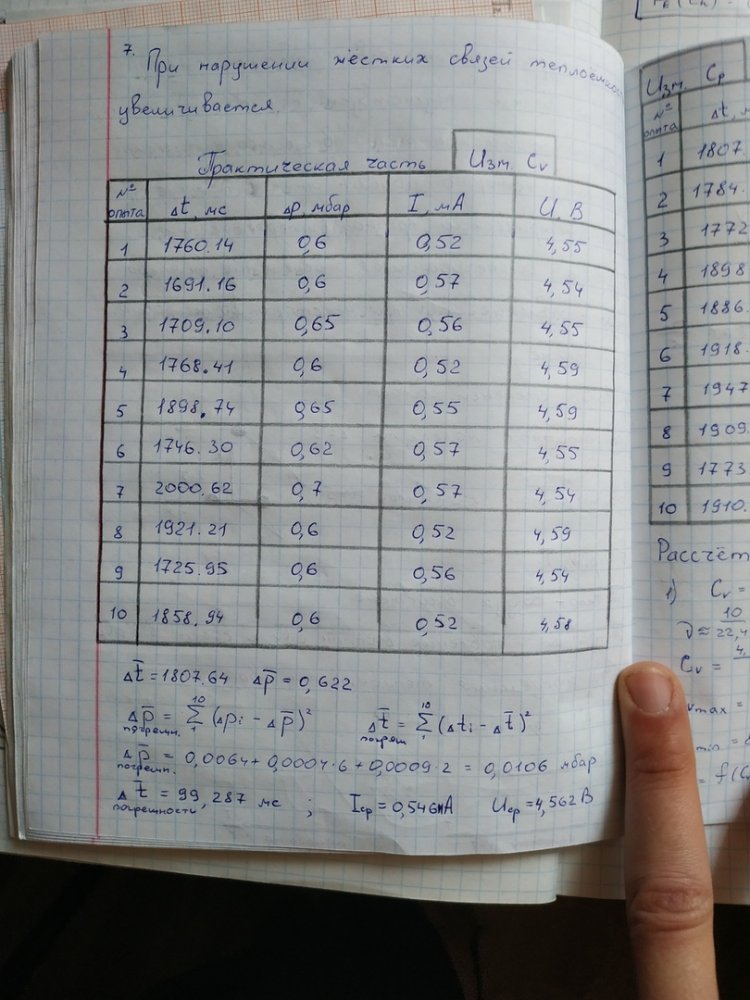 7. При нарушении жёстких связей
увеличивается.
Практическая часть Изм. Cv
№ опыта Δt, мс Δp, мбар I, мА U, В
1 1760.14 0,6 0,52 4,55
2 1691.16 0,6 0,57 4,54
3 1709.10 0,65 0,56 4,55
4 1768.41 0,6 0,52 4,59
5 1898.74 0,65 0,55 4,59
6 1746.30 0,62 0,57 4,55
7 2000.62 0,7 0,57 4,54
8 1921.21 0,6 0,52 4,59
9 1725.95 0,6 0,56 4,54
10 1858.94 0,6 0,52 4,58
Δt̄ = 1807.64 Δp̄ = 0,622
Δp̄ погрешн. = Σ₁¹⁰ (Δpi - Δp̄)² Δt̄ погреш = Σ₁¹⁰ (Δti - Δt̄)²
Δp̄ погрешн. = 0,0064 + 0,0004·6 + 0,0009·2 = 0,0106 мбар
Δt̄ погрешности = 99,287 мс ; Iср = 0,546мА Uср = 4,562 В
Изм. Cp
№ опыта Δt,
1 1807.
2 1784.
3 1772
4 1898
5 1886.
6 1918.
7 1947
8 1909.
9 1773
10 1910.
Рассчёт
1) Cv =
ν ≈ 10/22,4
Cv = 4,
max =
min =
= f(C